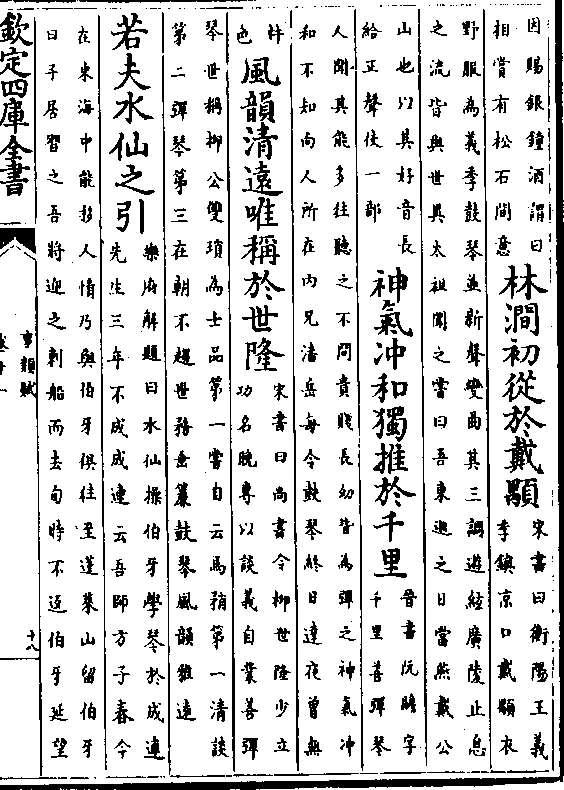 因賜銀鐘酒謂曰
相賞有松石間意
林澗初從於戴顒
宋書曰衡陽王義
季鎮京口戴顒衣
野服為義季鼓琴並新聲變曲其三調遊絃廣陵止息
之流皆與世異太祖聞之嘗曰吾東巡之日當燕戴公
山也以其好音長
給正聲伎一部
神氣冲和獨推於千里
晉書阮瞻字
千里善彈琴
人聞其能多往聽之不問貴賤長幼皆為彈之神氣冲
和不知向人所在內兄潘岳每令鼓琴終日達夜曾無
忤
色
風韻清遠唯稱於世隆
宋書曰尚書令柳世隆少立
功名晚專以談義自業善彈
琴世稱柳公雙瑣為士品第一嘗自云馬矟第一清談
第二彈琴第三在朝不趨世務垂簾鼓琴風韻雅遠
若夫水仙之引
樂府解題曰水仙操伯牙學琴於成連
先生三年不成成連云吾師方子春今
在東海中能移人情乃與伯牙俱往至蓬萊山留伯牙
曰子居習之吾將迎之刺船而去旬時不返伯牙延望
欽定四庫全書
事類賦
卷十一
十八